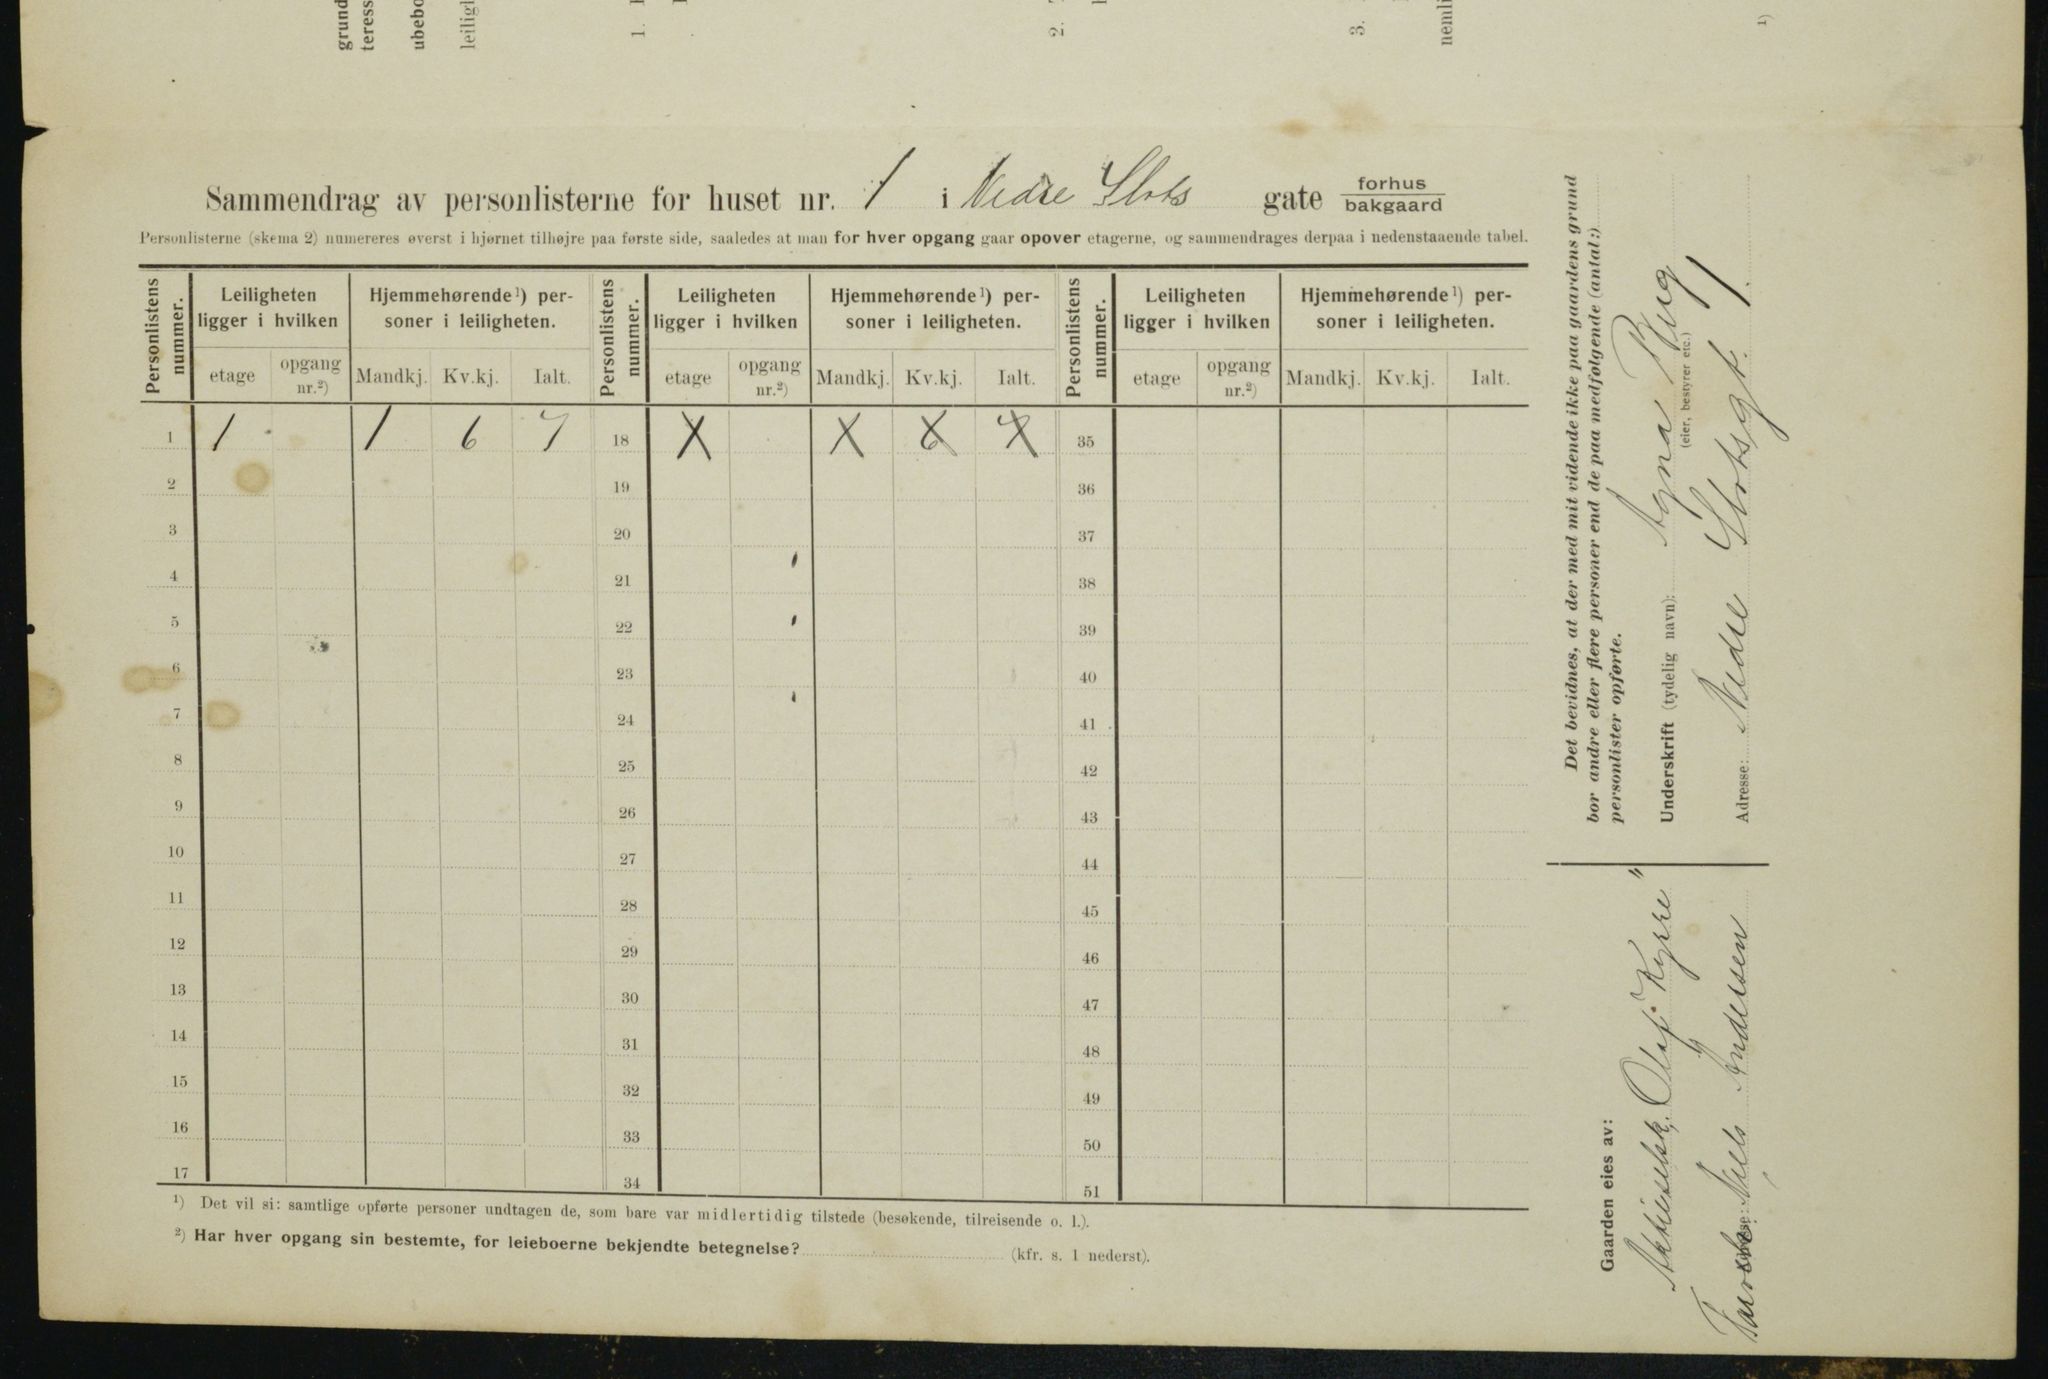 grund
teress
ubebo
leiligh
1.
2.
3.
nemli
1)
Sammendrag av personlisterne for huset nr. 1 i Nedre Slots gate forhus
bakgaard
Personlisterne (skema 2) numereres øverst i hjørnet tilhøjre paa første side, saaledes at man for hver opgang gaar opover etagerne, og sammendrages derpaa i nedenstaaende tabel.
Personlistens nummer. Leiligheten ligger i hvilken Hjemmehørende 1) personer i leiligheten. Personlistens nummer. Leiligheten ligger i hvilken Hjemmehørende 1) personer i leiligheten. Personlistens nummer. Leiligheten ligger i hvilken Hjemmehørende 1) personer i leiligheten.
etage opgang nr.2) Mandkj. Kv.kj. Ialt. etage opgang nr.2) Mandkj. Kv.kj. Ialt. etage opgang nr.2) Mandkj. Kv.kj. Ialt.
1 1 1 6 7 18 1 1 6 7 35
2 19 36
3 20 37
4 21 38
5 22 39
6 23 40
7 24 41
8 25 42
9 26 43
10 27 44
11 28 45
12 29 46
13 30 47
14 31 48
15 32 49
16 33 50
17 34 51
1) Det vil si: samtlige opførte personer undtagen de, som bare var midlertidig tilstede (besøkende, tilreisende o. l.).
2) Har hver opgang sin bestemte, for leieboerne bekjendte betegnelse? (kfr. s. 1 nederst).
Det bevidnes, at der med mit vidende ikke paa gaardens grund
bor andre eller flere personer end de paa medfølgende (antal:)
personlister opførte.
Underskrift (tydelig navn): Agna Berg
(eier, bestyrer etc.)
Adresse: Nedre Slotsgt. 1.
Gaarden eies av:
Aktieselsk. "Olaf Kyrre"
Niels Andersen